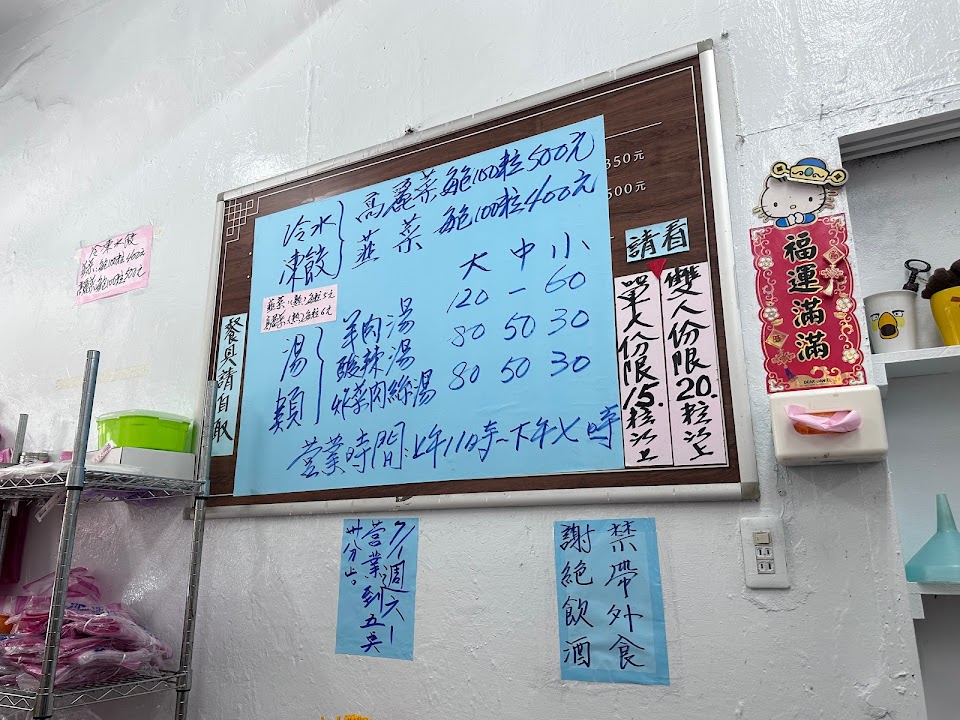 冷凍水餃
韮菜:每100粒400元
350元
500元
冷水
凍餃
高麗菜每100粒500元
韮菜 每100粒400元
大 中 小
韮菜(熟)每粒5元
高麗菜(熟)每粒6元
湯類
羊肉湯 120 - 60
酸辣湯 80 50 30
炸菜肉絲湯 80 50 30
營業時間:上午11時~下午七時
請看
雙人份限20.粒以上
單人份限15.粒以上
餐具請自取
福運滿滿
營業到五點
卅分止。
禁帶外食
謝絕飲酒